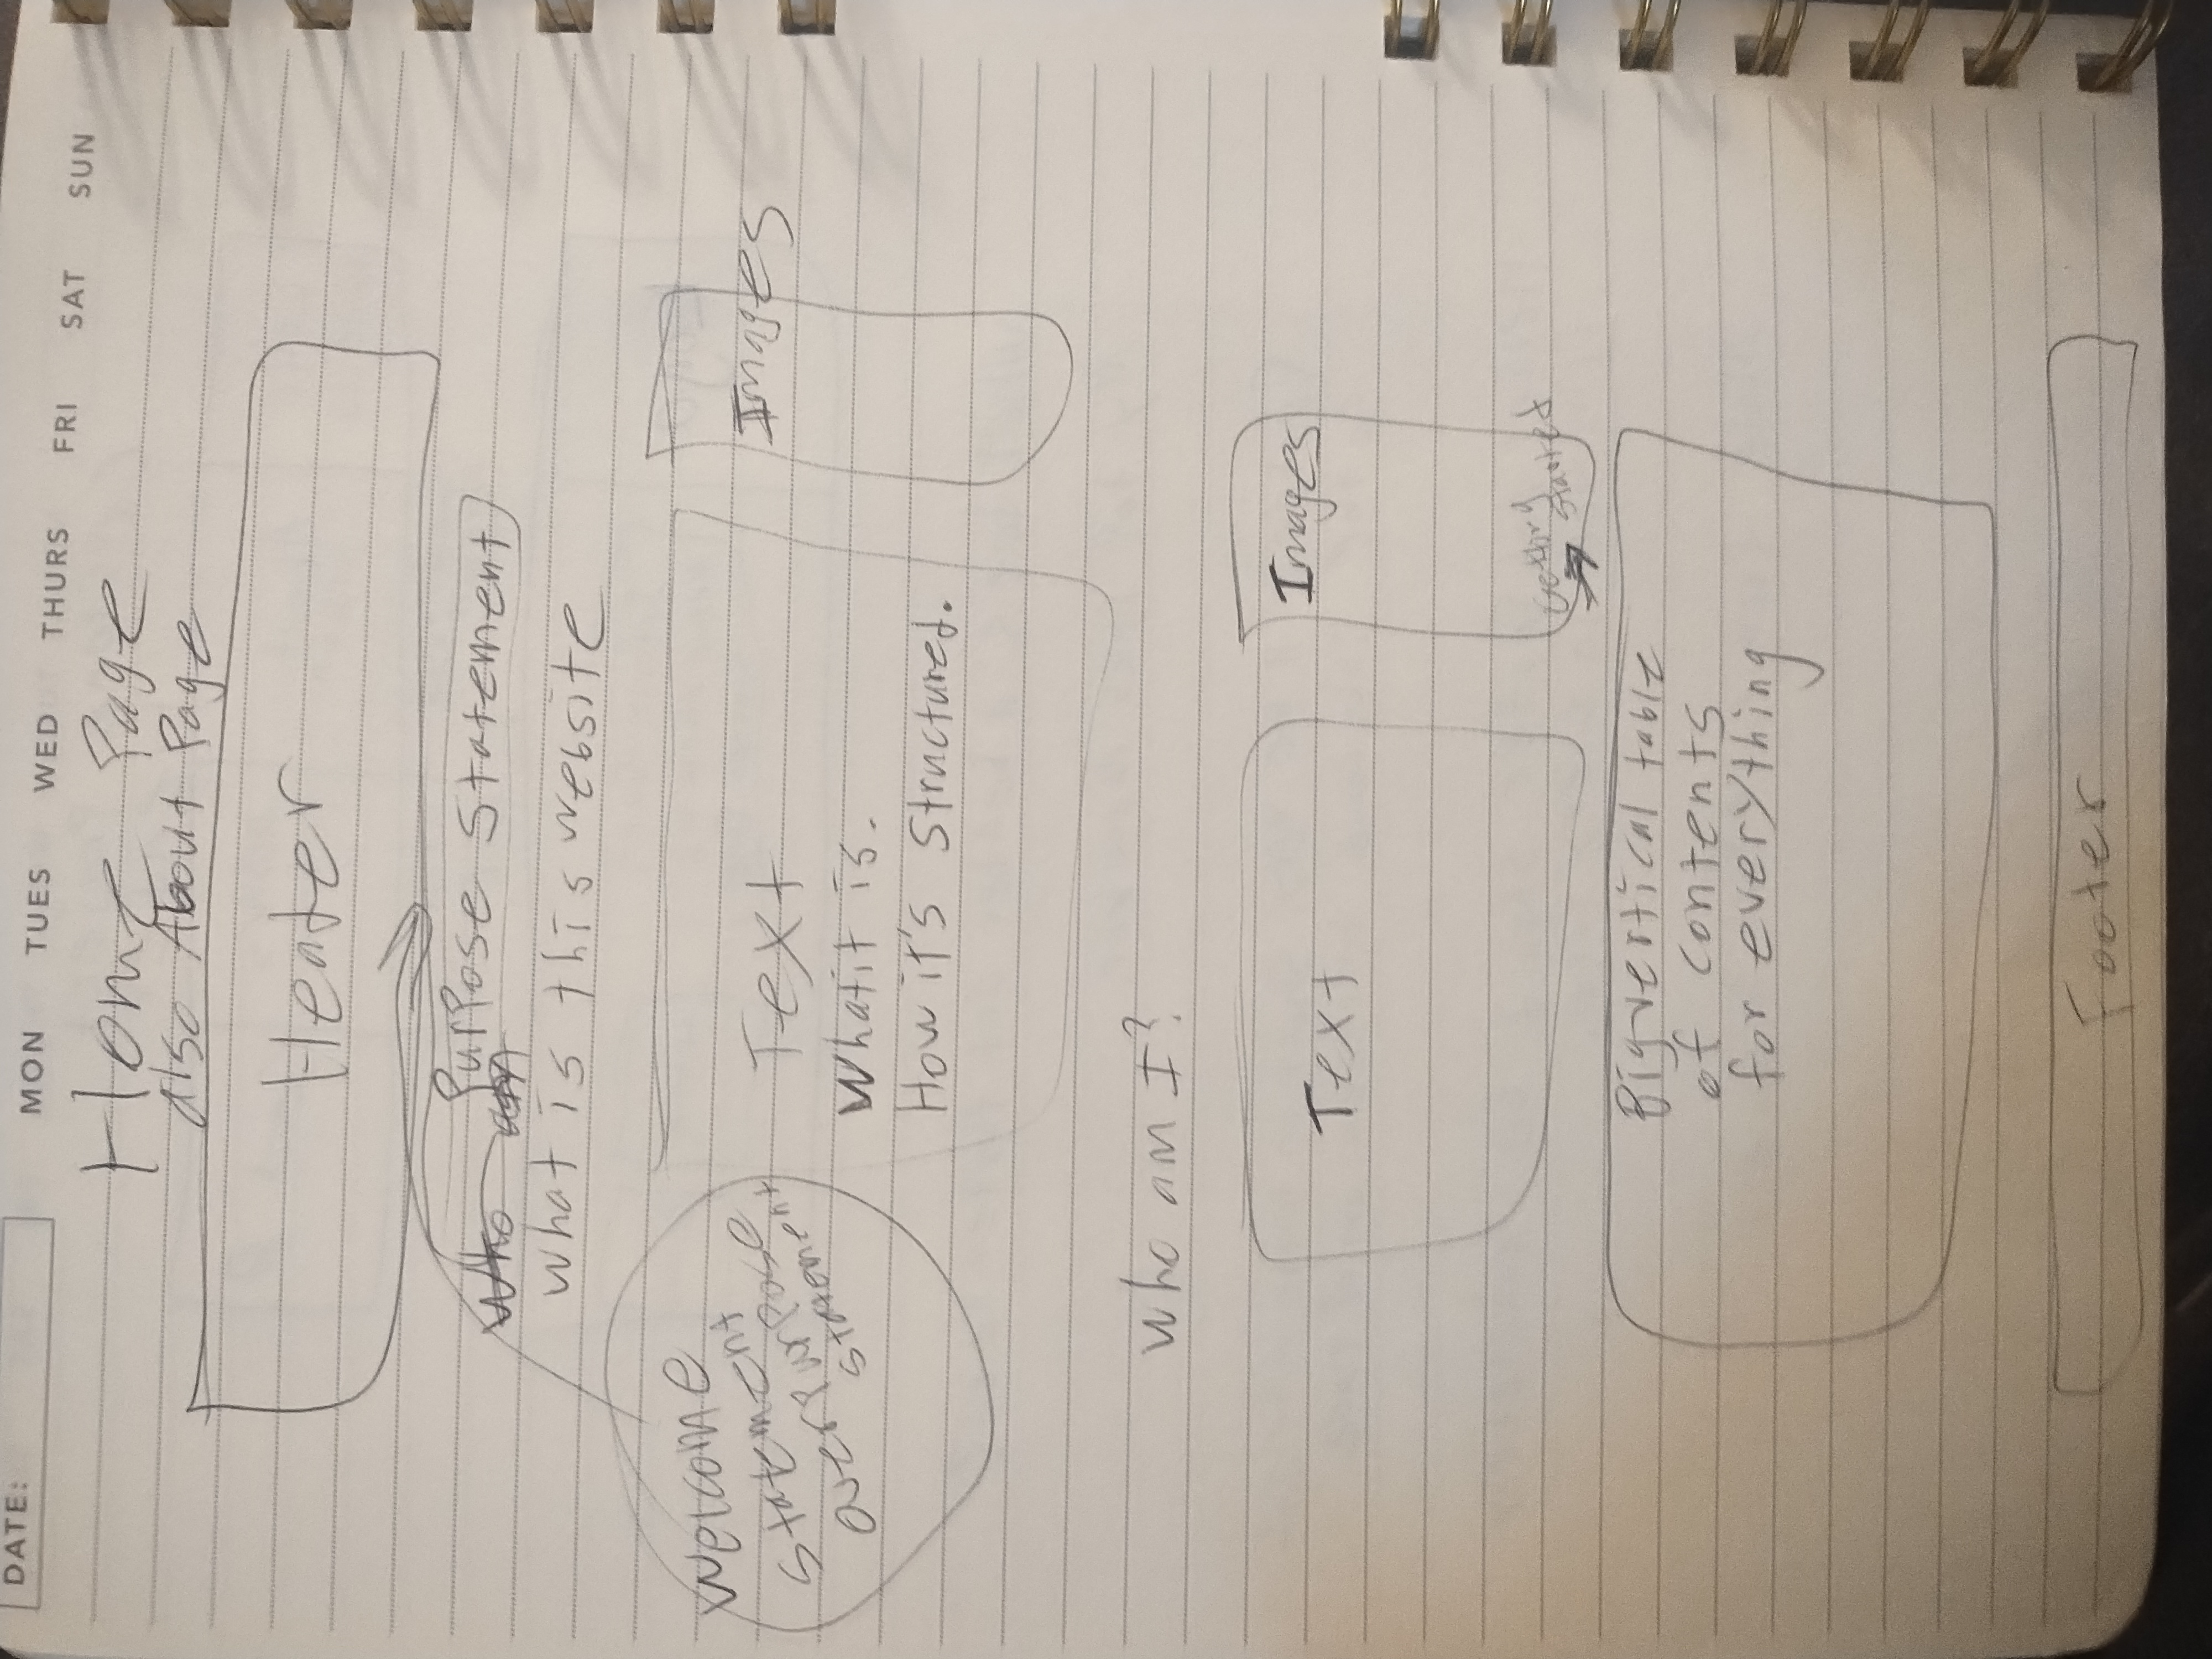 DATE:
MON TUES WED THURS FRI SAT SUN
Home Page
also About Page
Header
Purpose Statement
Who am
What is this website
Welcome
Statement
over Purpose
Statement
Text
What it is.
How it's Structured.
Images
Who am I?
Text
Images
Getting
Started
Big vertical table
of contents
for everything
Footer